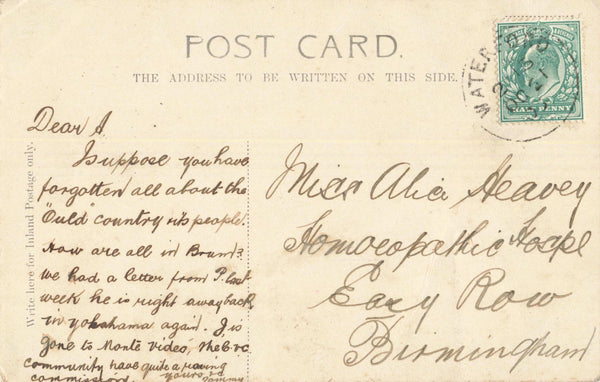 POST CARD.
THE ADDRESS TO BE WRITTEN ON THIS SIDE.
WATERFORD
HALF PENNY
Write here for Inland Postage only.
Dear A
I suppose you have
forgotten all about the
"Ould" country & its people
How are all in Brum?
We had a letter from P. last
week he is right away back
in yokohama again. J. is
gone to Monte Video, the
community have quite a roving
commission. yours
Tommy
Miss Alia Heavey
Homoeopathic Hospl
Easy Row
Birmingham